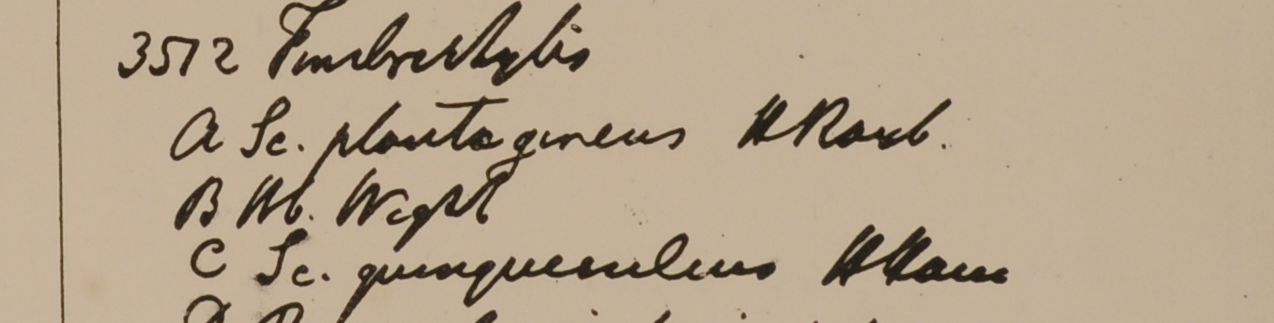 3512 Fimbristylis
A Sc. plantagineus H Roxb.
B Hb. Wight
C Sc. quinquesuleus H Ham